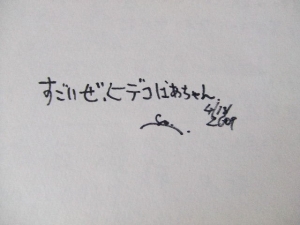 すごいぜ、ヒデコばあちゃん
4/18/
2009